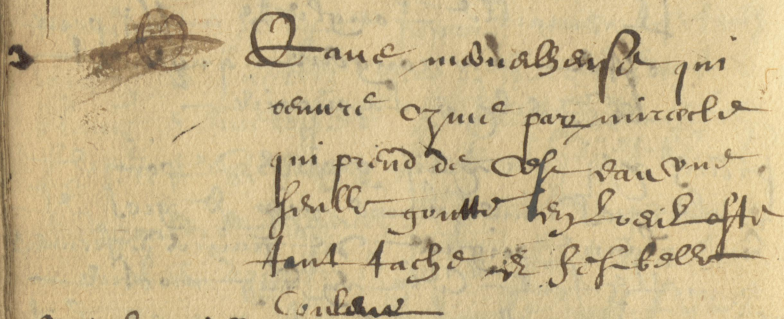 Eaue merveilheuse qui
oeuvre comme par miracle
qui prend de ceste eau une
seulle goutte en loeul oste
tout tache et fest belle
Couleur